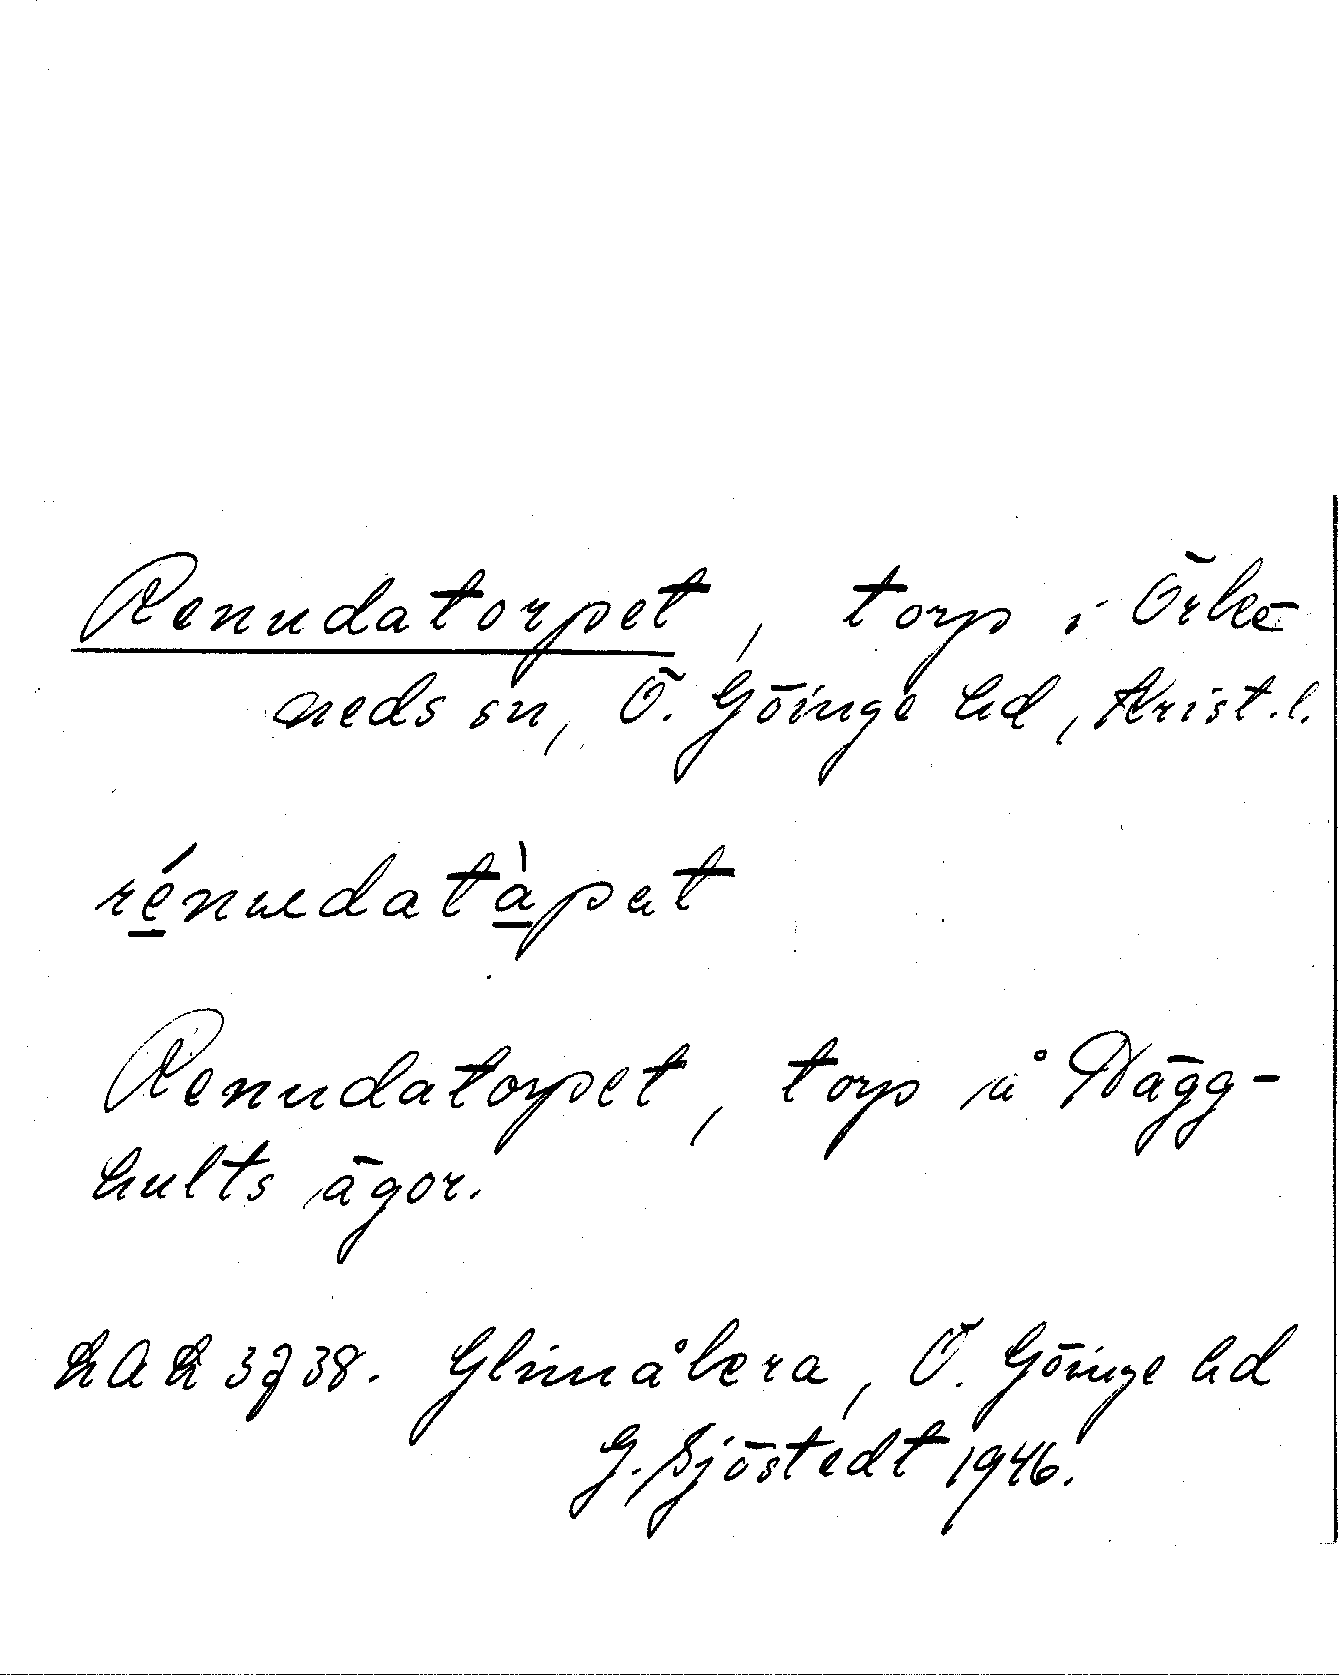 Renndatorpet, torp i Örke=
neds sn, Ö. Göinge hd, Krist.l.
Renndatorpet, torp å Dägg-
hults ägor.
LAL 3738. Glimåkra, Ö. Göinge hd
G. Sjöstedt 1946.